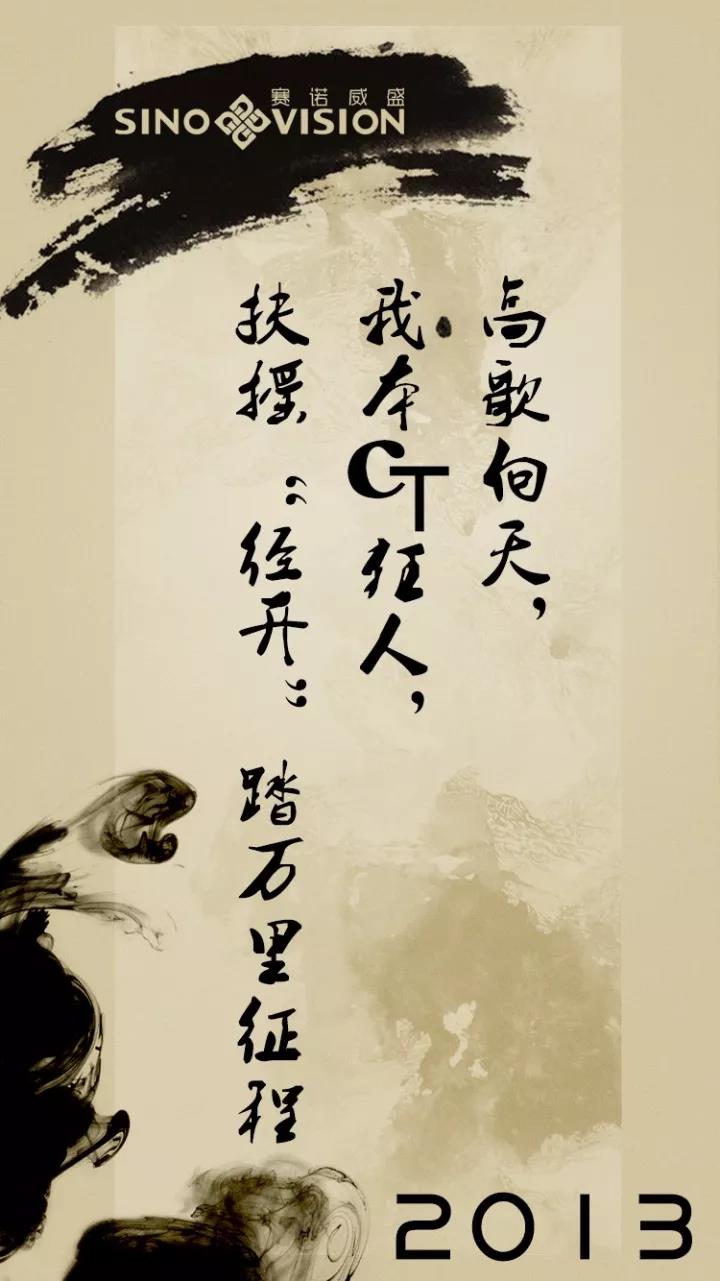 赛诺威盛
SINO VISION
高歌向天，
我本CT狂人，
扶摇“经开”踏万里征程
2013